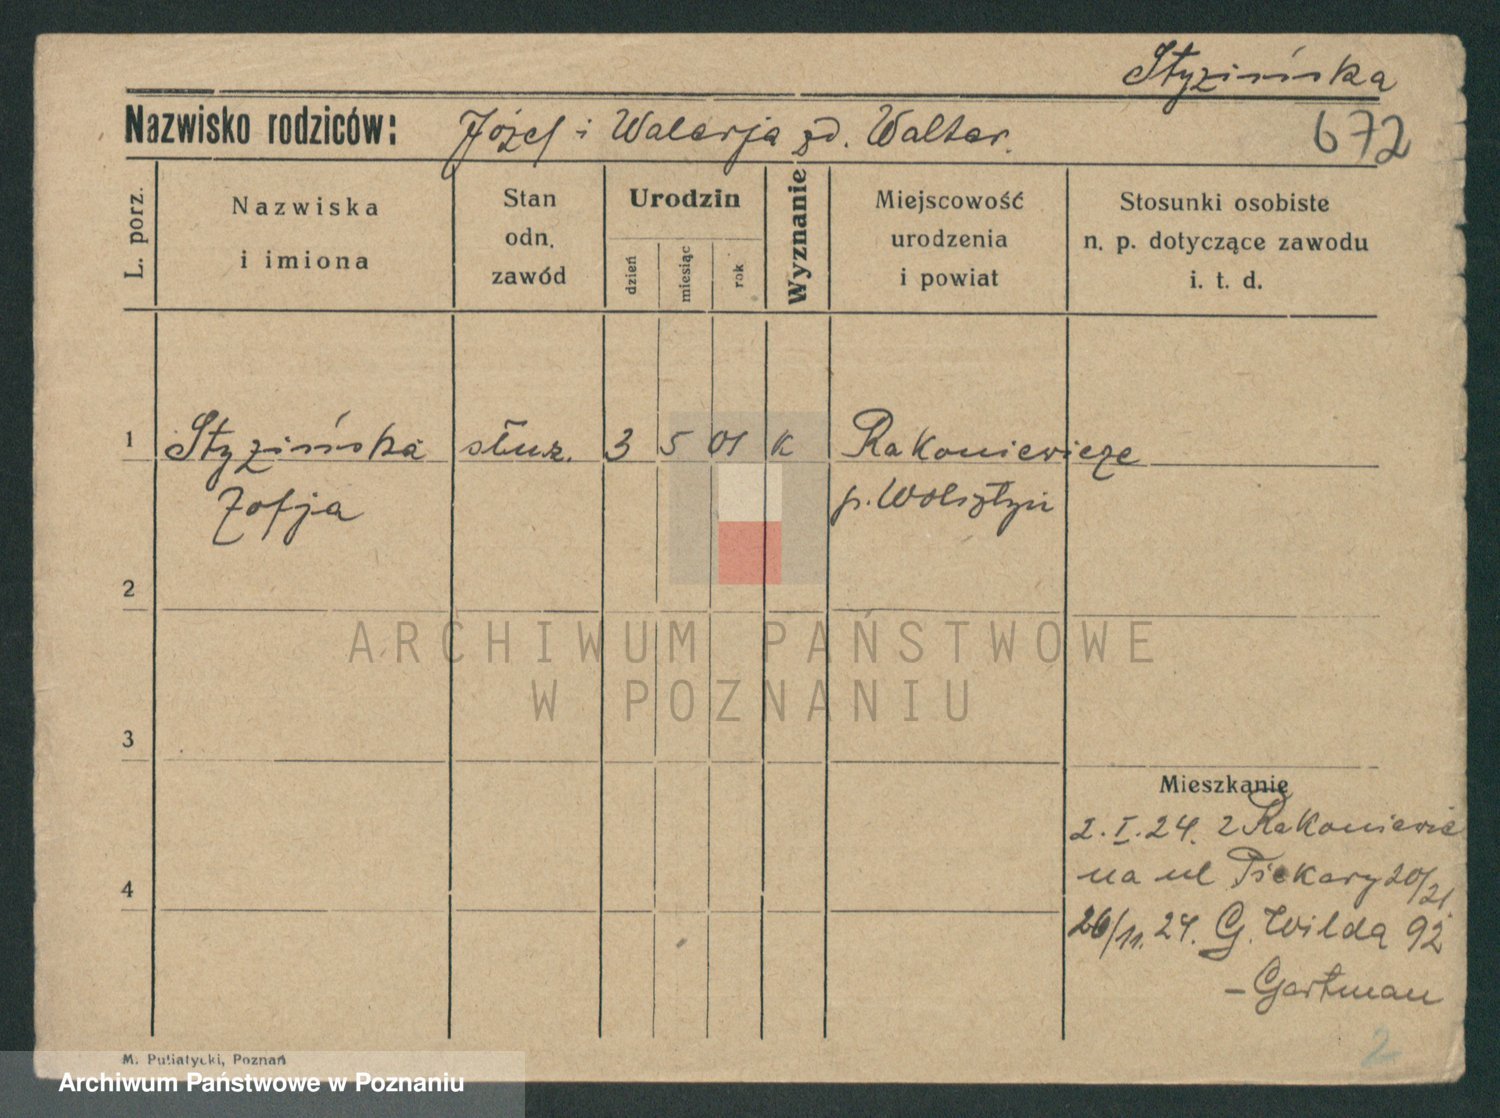 Styzińska
Nazwisko rodziców: Józef i Walerja zd. Walter.
672
L. porz.
Nazwiska
i imiona
Stan
odn.
zawód
Urodzin
dzień
miesiąc
rok
Wyznanie
Miejscowość
urodzenia
i powiat
Stosunki osobiste
n. p. dotyczące zawodu
i. t. d.
1 Styzińska służ. 3 5 01 K Rakoniewicze
Zofja p. Wolsztyn
2
ARCHIWUM PAŃSTWOWE
W POZNANIU
3
Mieszkanie
2.I.24. z Rakoniewic
na ul Piekary 20/21.
4
26/11.24. G. Wilda 92
– Gartman
2
M. Puliatycki, Poznań
Archiwum Państwowe w Poznaniu